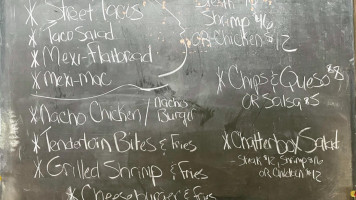 * Street Tacos
* Taco Salad
* Mexi-Flatbread
* Mexi-Mac
* Nacho Chicken / Nacho Burger
* Tenderloin Bites & Fries
* Grilled Shrimp & Fries
* Cheeseburger & Fries
Steak
Shrimp $16
OR Chicken $12
* Chips & Queso $8
OR Salsa $5
* Chatterbox Salad
- Steak $12, Shrimp $16
OR Chicken $12